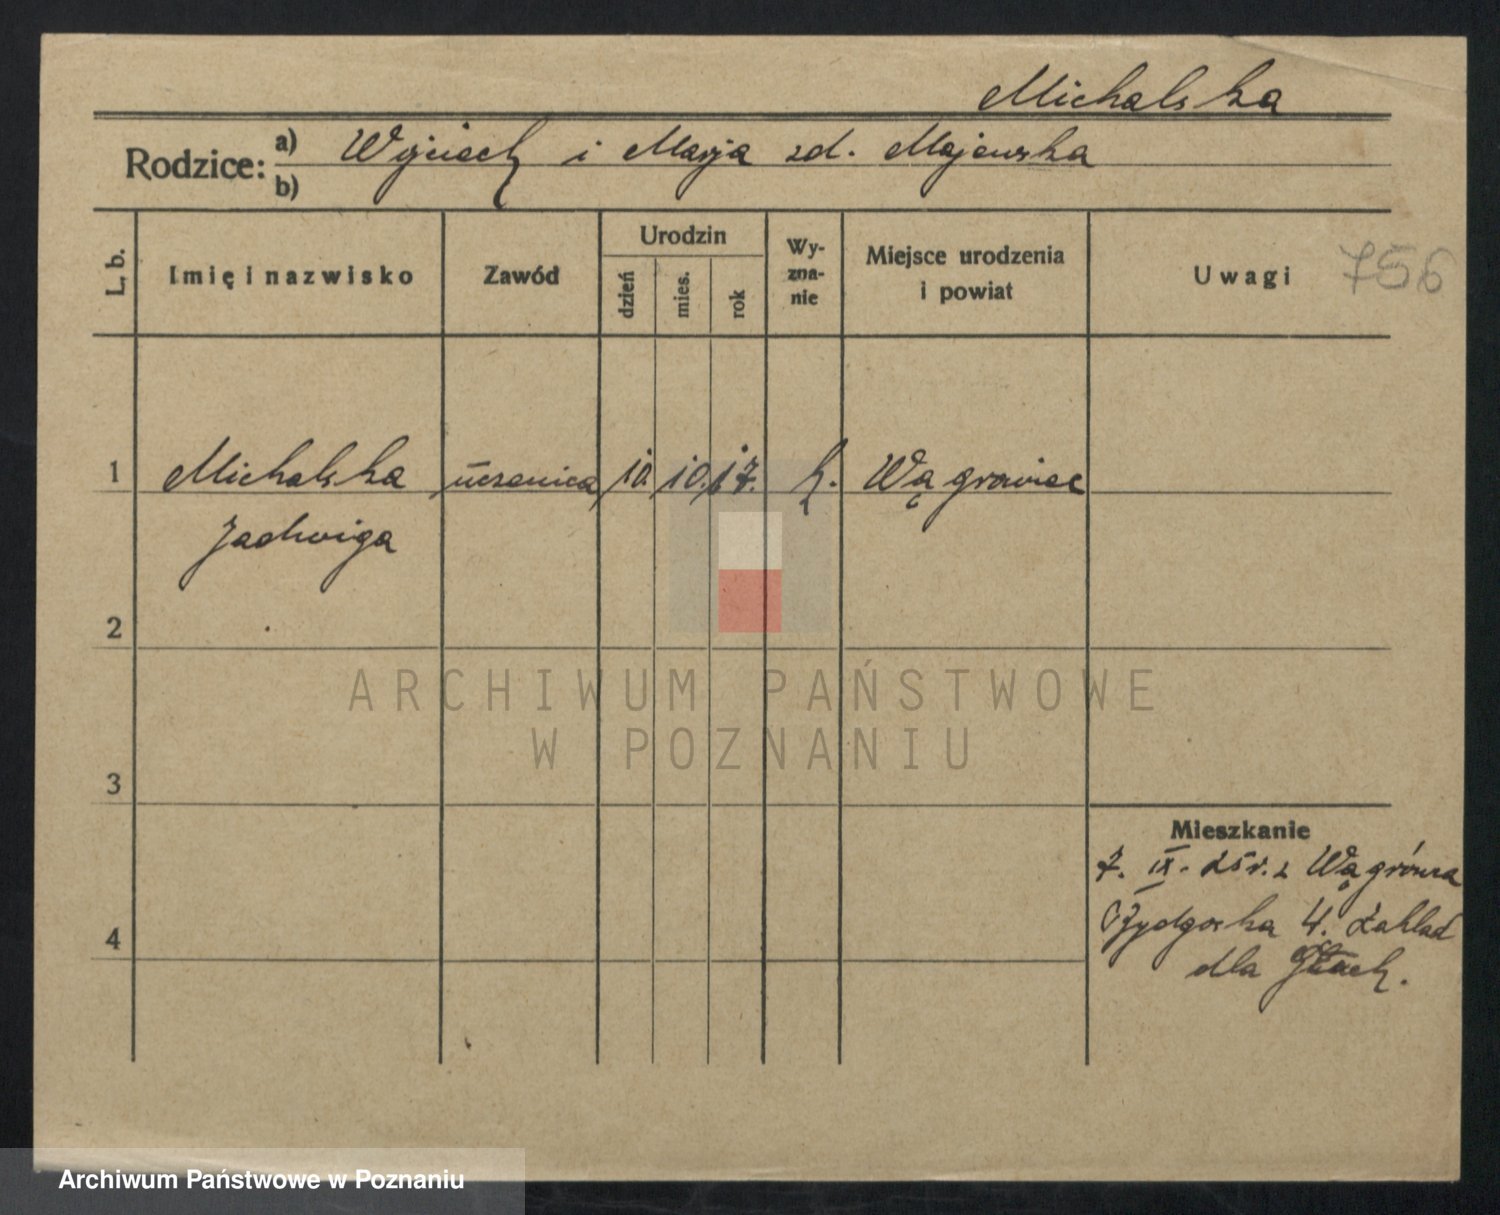 Michalska
Rodzice: a) Wojciech i Marja zd. Majewska
b)
L. b.
Imię i nazwisko
Zawód
Urodzin
dzień
mies.
rok
Wy-
zna-
nie
Miejsce urodzenia
i powiat
Uwagi
756
1 Michalska uczenica 10. 10. 17. k. Wągrowiec
Jadwiga
2
3
4
ARCHIWUM PAŃSTWOWE
W POZNANIU
Mieszkanie
7. IX. 25 r. z Wągrówca
Bydgoska 4. Zakład
dla Głuch.
Archiwum Państwowe w Poznaniu